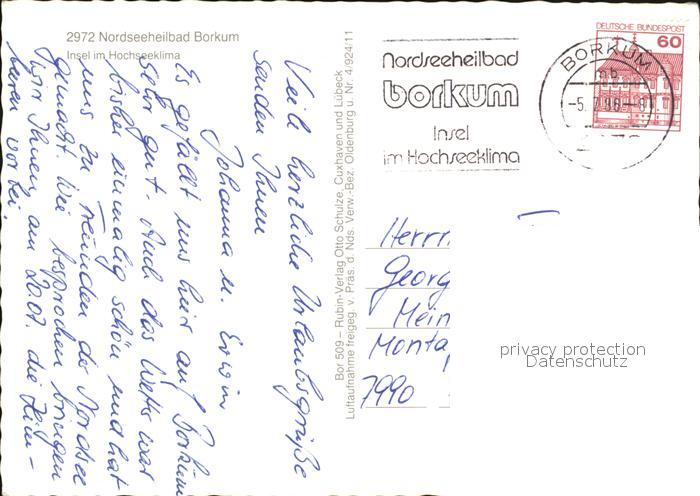 2972 Nordseeheilbad Borkum
Insel im Hochseeklima
Viele herzliche Urlaubsgrüße
senden Ihnen
Johanna u. Erwin
Es gefällt uns hier auf Borkum
sehr gut. Auch das Wetter war
bisher einmalig schön und hat
uns zu Freunden der Nordsee
gemacht. Wie besprochen bringen
wir Ihnen am 20.07. die
vorbei.
Bor 509 – Rubin-Verlag Otto Schulze, Cuxhaven und Lübeck
Luftaufnahme freigeg. v. Präs. d. Nds. Verw.-Bez. Oldenburg u. Nr. 4/924/11
Nordseeheilbad
borkum
Insel
im Hochseeklima
DEUTSCHE BUNDESPOST
60
BORKUM
mb
-5.7.86-8
2972
Herrn
Georg
Mein
Monta
7990
privacy protection
Datenschutz